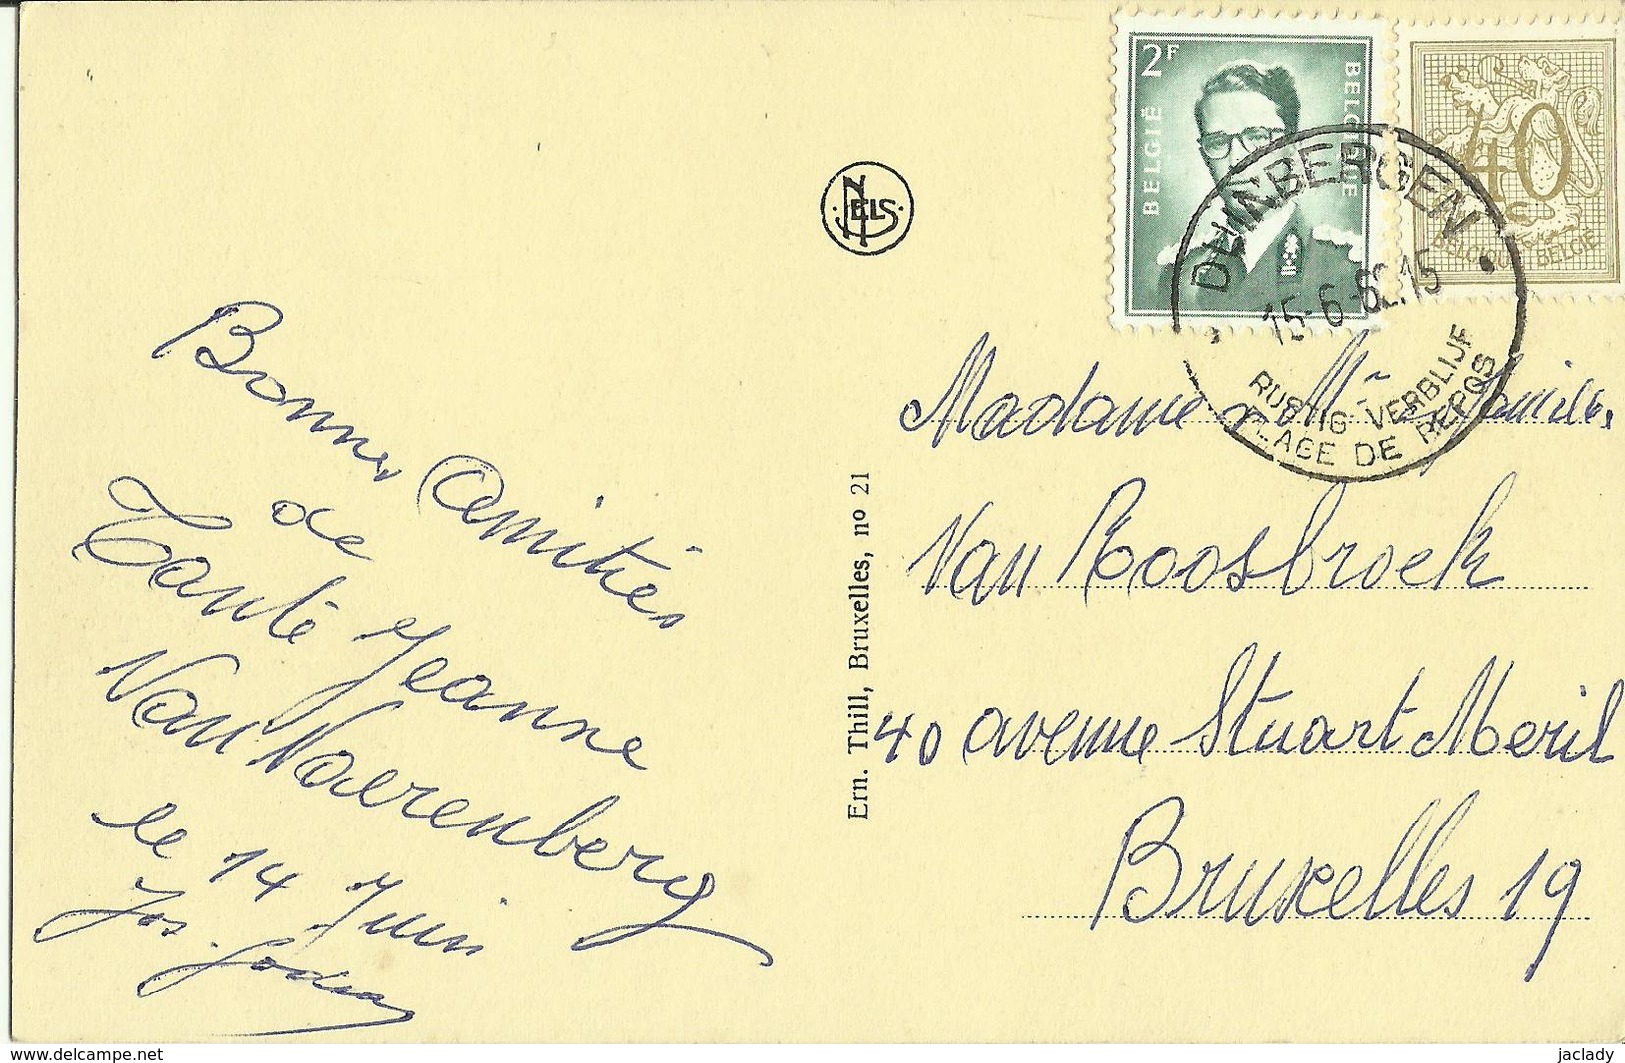 2F
BELGIË
BELGIQUE
40
BELGIQUE BELGIË
DUINBERGEN
15-6-62.15
RUSTIG VERBLIJF
PLAGE DE REPOS
NELS
Bonnes Amitiés
de
Tante Jeanne
Van Varenberg
le 14 Juin
Jos.
Ern. Thill, Bruxelles, no 21
Madame Mr
Van Roosbroek
40 avenue Stuart Meril
Bruxelles 19
www.delcampe.net
jaclady